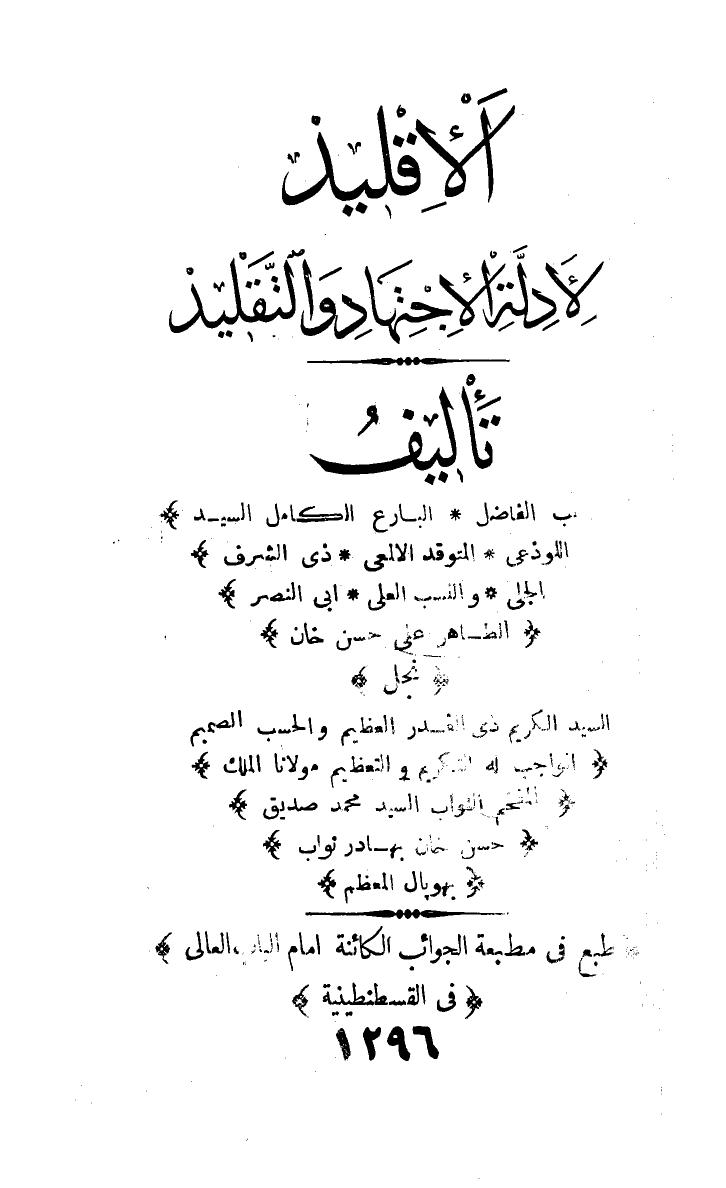 اَلْأِقْلِيْذ
لِأَدِلَّةِ الْأِجْتِهَادِ وَالتَّقْلِيْذ
تَأْلِيْفُ
الفاضل * البارع الكامل السيد
اللوذعى * المتوقد الالمعى * ذى الشرف
الجلى * والنسب العلى * ابى النصر
الطاهر على حسن خان
نجل
السيد الكريم ذى القدر العظيم والحسب الصميم
الواجب له التكريم والتعظيم مولانا الملك
المفخم النواب السيد محمد صديق
حسن خان بهادر نواب
بهوپال المعظم
طبع فى مطبعة الجوائب الكائنة امام الباب العالى
فى القسطنطينية
١٢٩٦